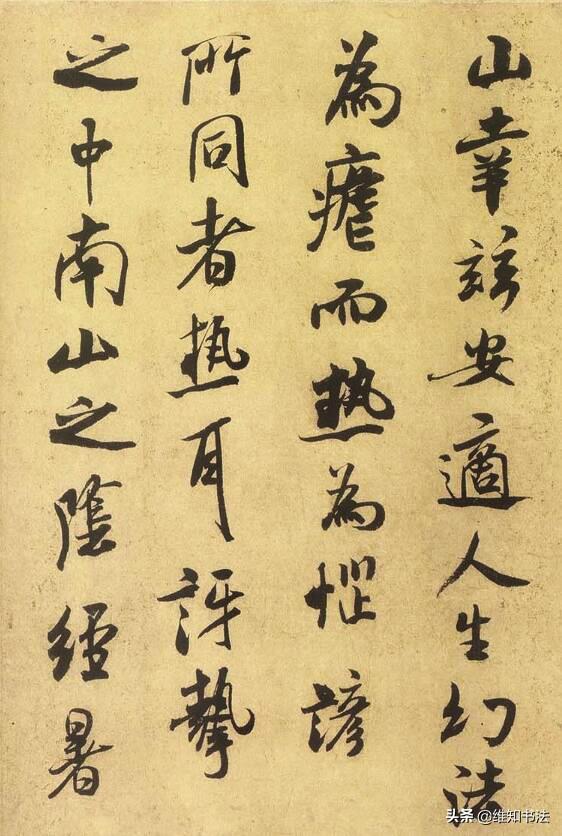 山幸茲安適人生幻法
為瘧而熱為惱諺
所同者熱耳訝摯
之中南山之陰經暑
头条 @维知书法